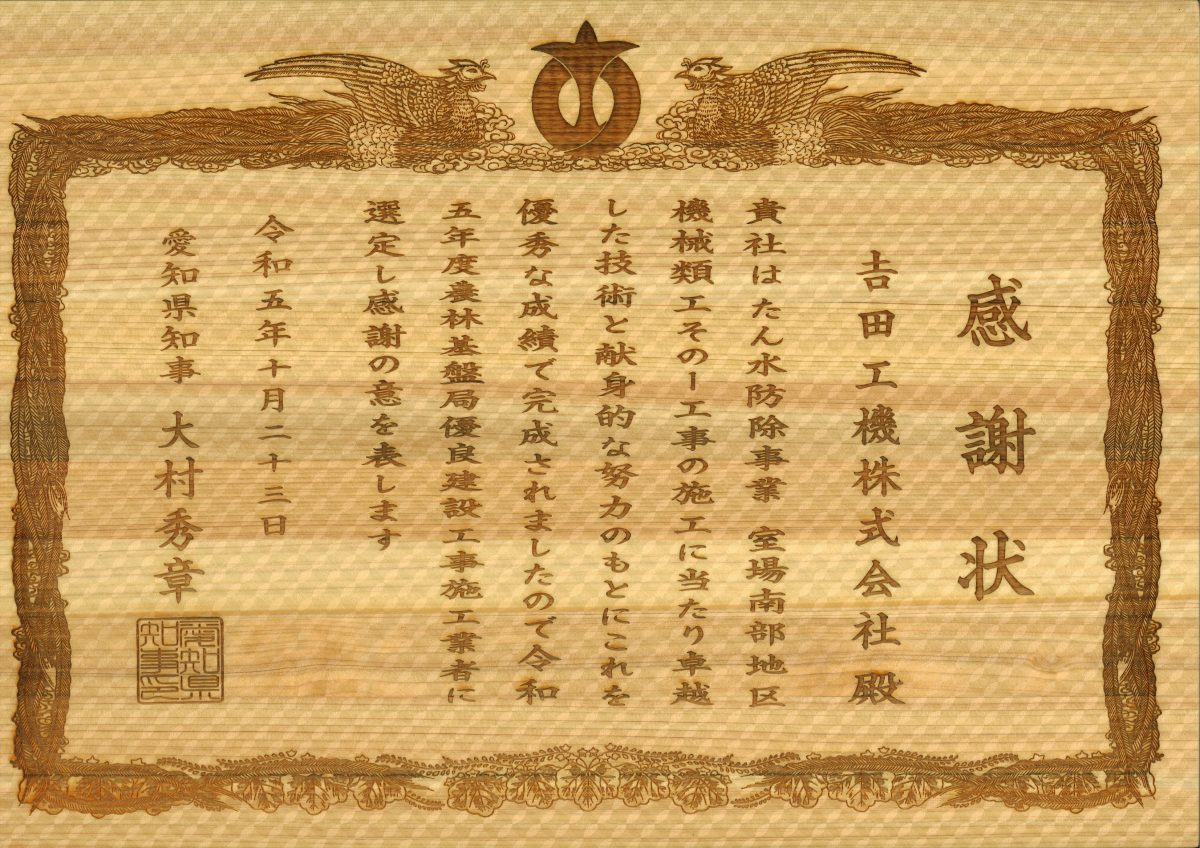 感謝状
𠮷田工機株式会社殿
貴社はたん水防除事業 室場南部地区
機械類工その一工事の施工に当たり卓越
した技術と献身的な努力のもとにこれを
優秀な成績で完成されましたので令和
五年度農林基盤局優良建設工事施工業者に
選定し感謝の意を表します
令和五年十月二十三日
愛知県知事 大村秀章
愛知県
知事印